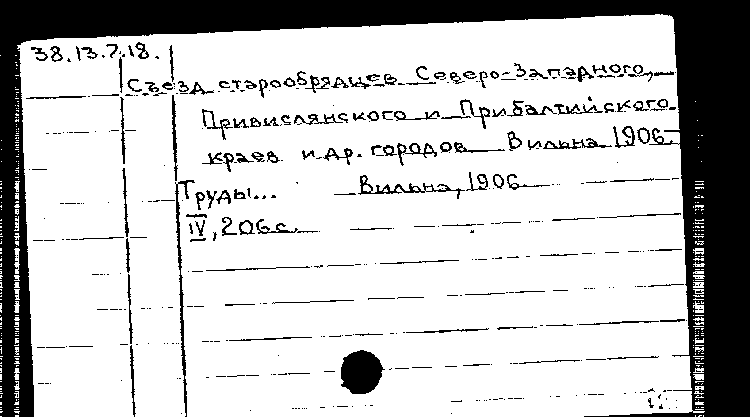 38.13.7.18.
Съезд старообрядцев Северо-Западного,
Привислянского и Прибалтийского
краев и др. городов Вильна 1906.
Труды... Вильна, 1906
IV, 206 с.